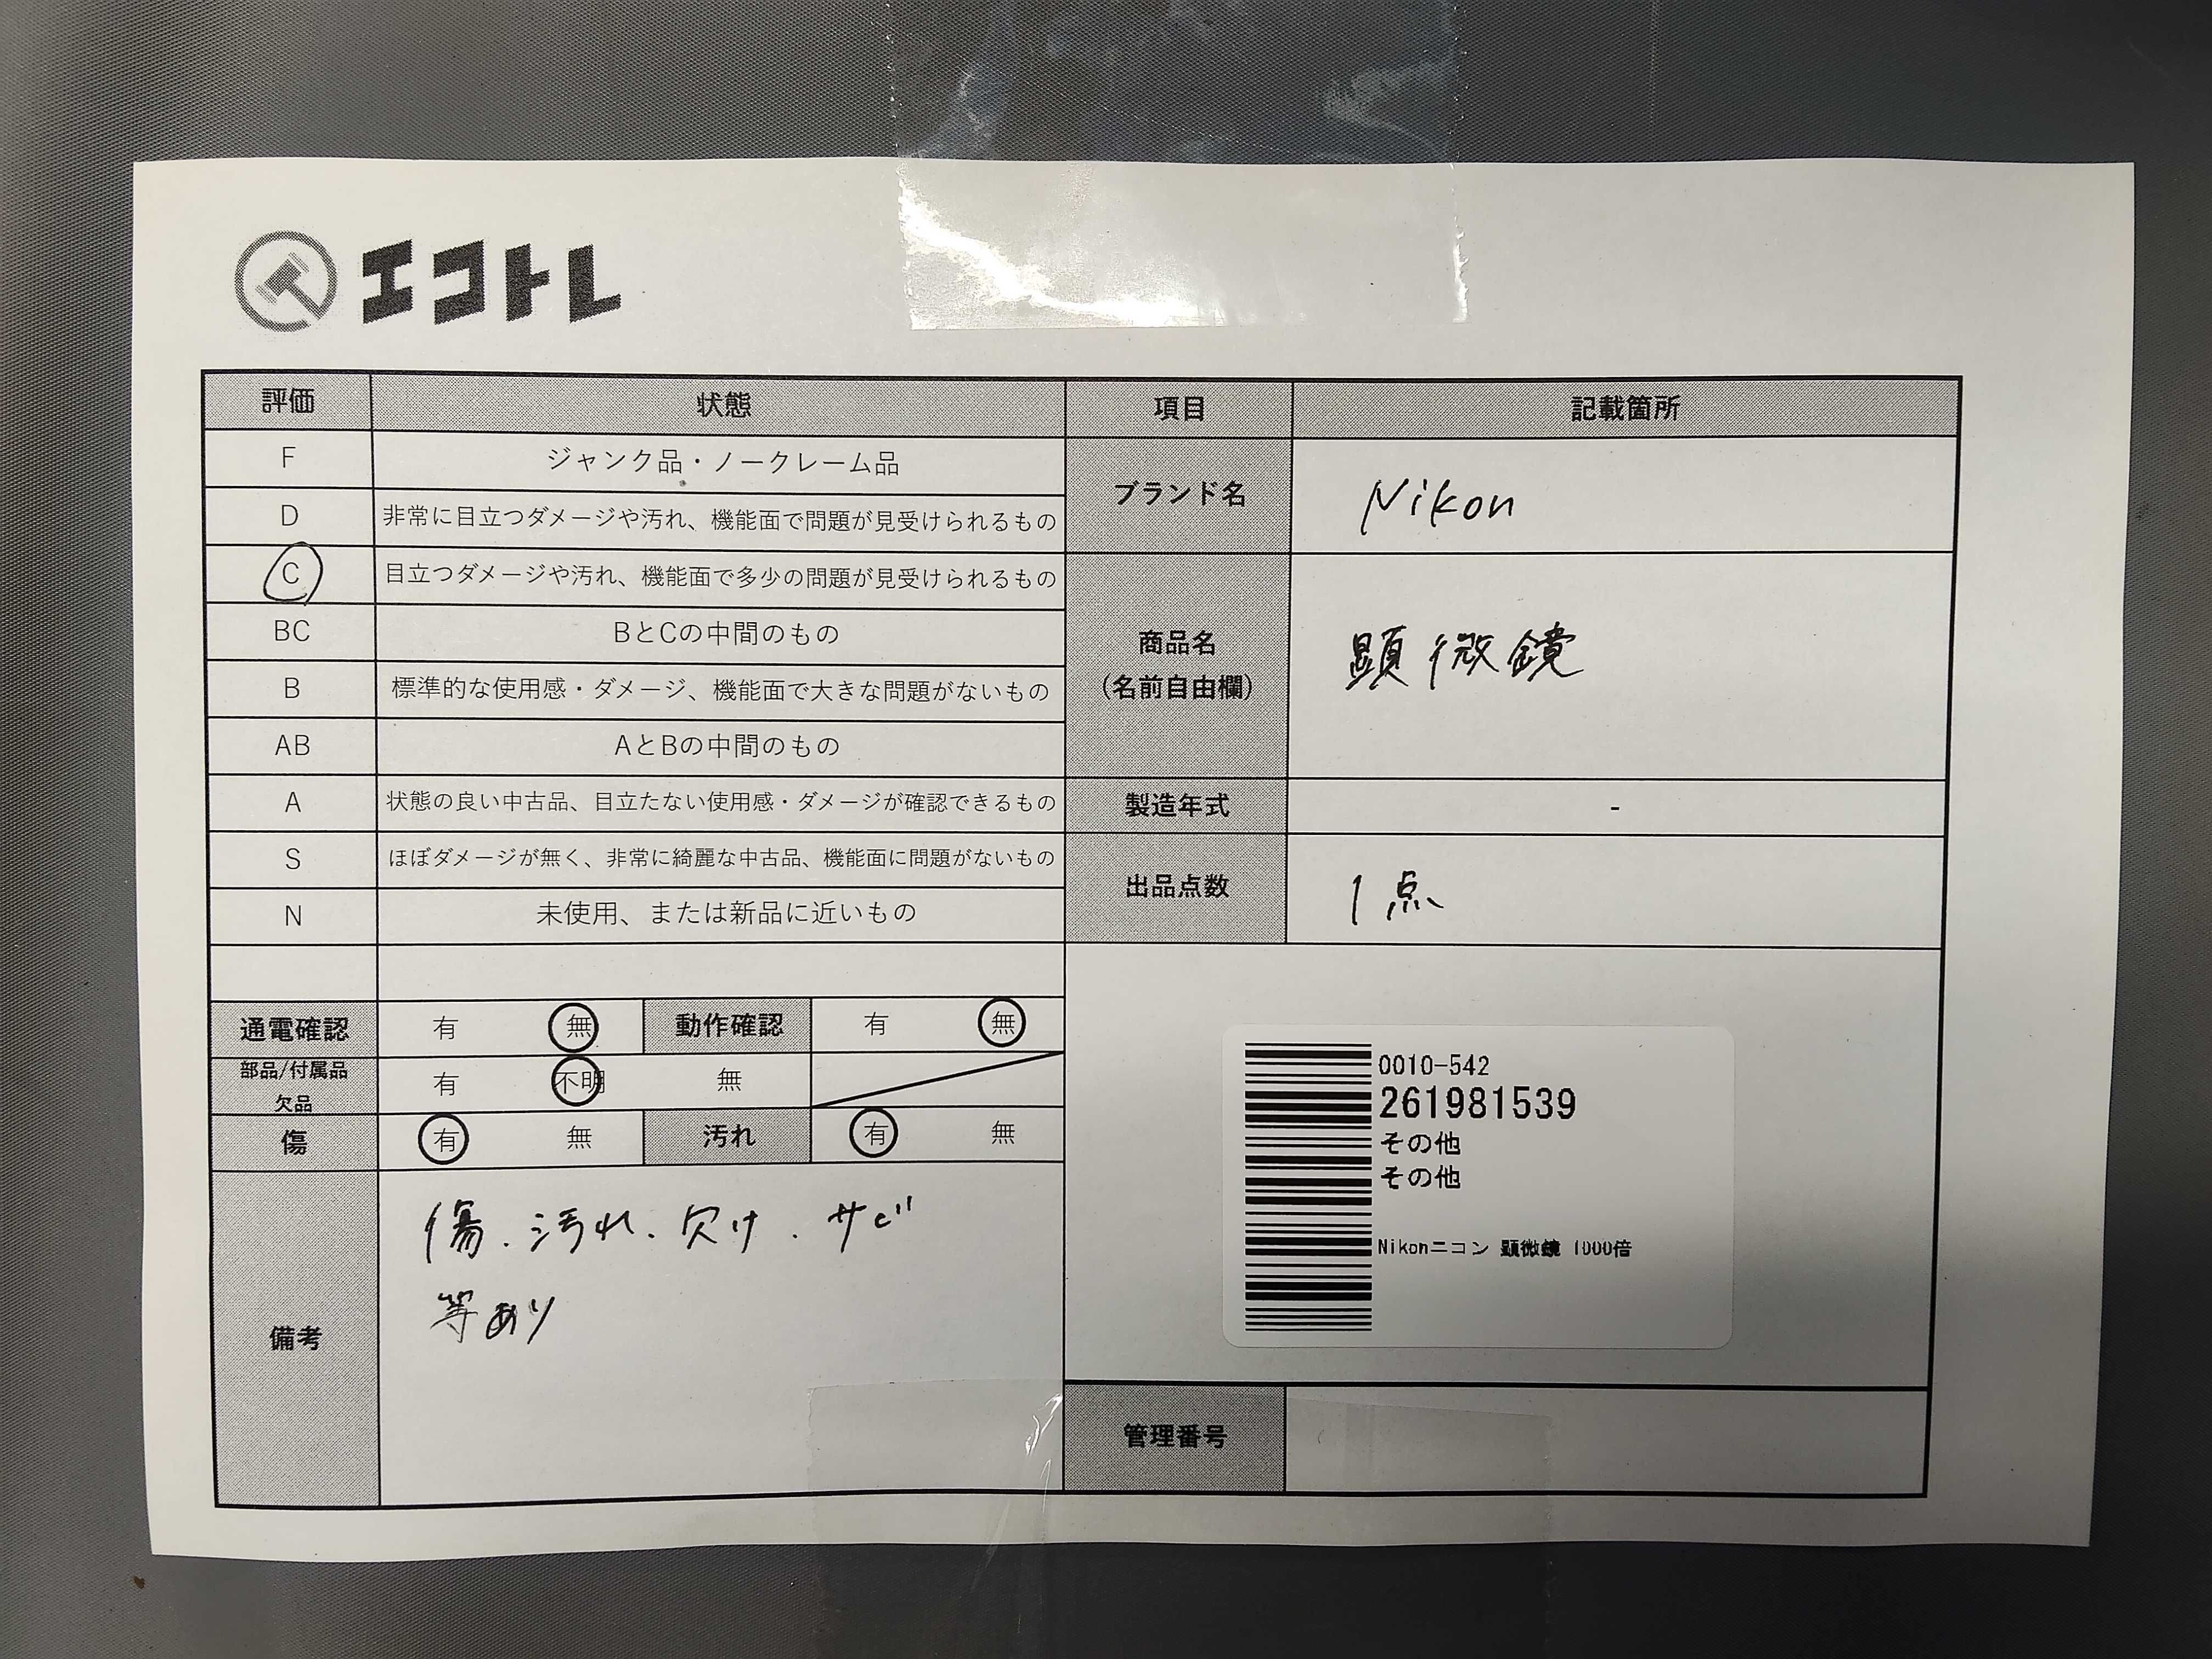 エコトレ
評価 状態 項目 記載箇所
F ジャンク品・ノークレーム品
D 非常に目立つダメージや汚れ、機能面で問題が見受けられるもの
ブランド名 Nikon
C 目立つダメージや汚れ、機能面で多少の問題が見受けられるもの
BC BとCの中間のもの
商品名
(名前自由欄)
顕微鏡
B 標準的な使用感・ダメージ、機能面で大きな問題がないもの
AB AとBの中間のもの
A 状態の良い中古品、目立たない使用感・ダメージが確認できるもの
製造年式 -
S ほぼダメージが無く、非常に綺麗な中古品、機能面に問題がないもの
出品点数 1点
N 未使用、または新品に近いもの
通電確認 有 無 動作確認 有 無
部品/付属品
欠品
有 不明 無
傷 有 無 汚れ 有 無
備考
傷.汚れ.欠け.サビ
等あり
0010-542
261981539
その他
その他
Nikonニコン 顕微鏡 1000倍
管理番号